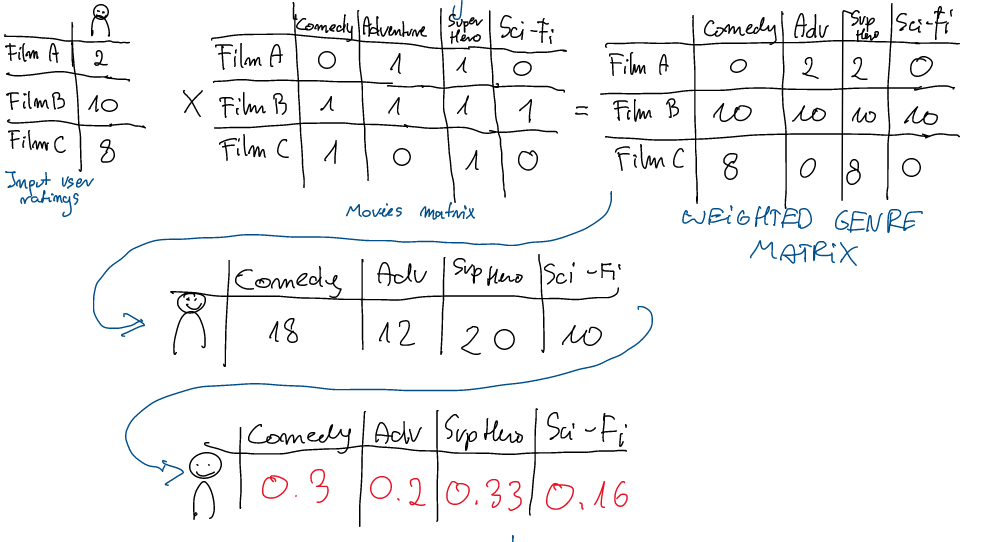 Film A 2
Film B 10
Film C 8
Input user
ratings
X
Comedy Adventure Super Hero Sci-Fi
Film A 0 1 1 0
Film B 1 1 1 1
Film C 1 0 1 0
Movies matrix
=
Comedy Adv Sup Hero Sci-Fi
Film A 0 2 2 0
Film B 10 10 10 10
Film C 8 0 8 0
WEIGHTED GENRE
MATRIX
Comedy Adv Sup Hero Sci-Fi
18 12 20 10
Comedy Adv Sup Hero Sci-Fi
0.3 0.2 0.33 0.16